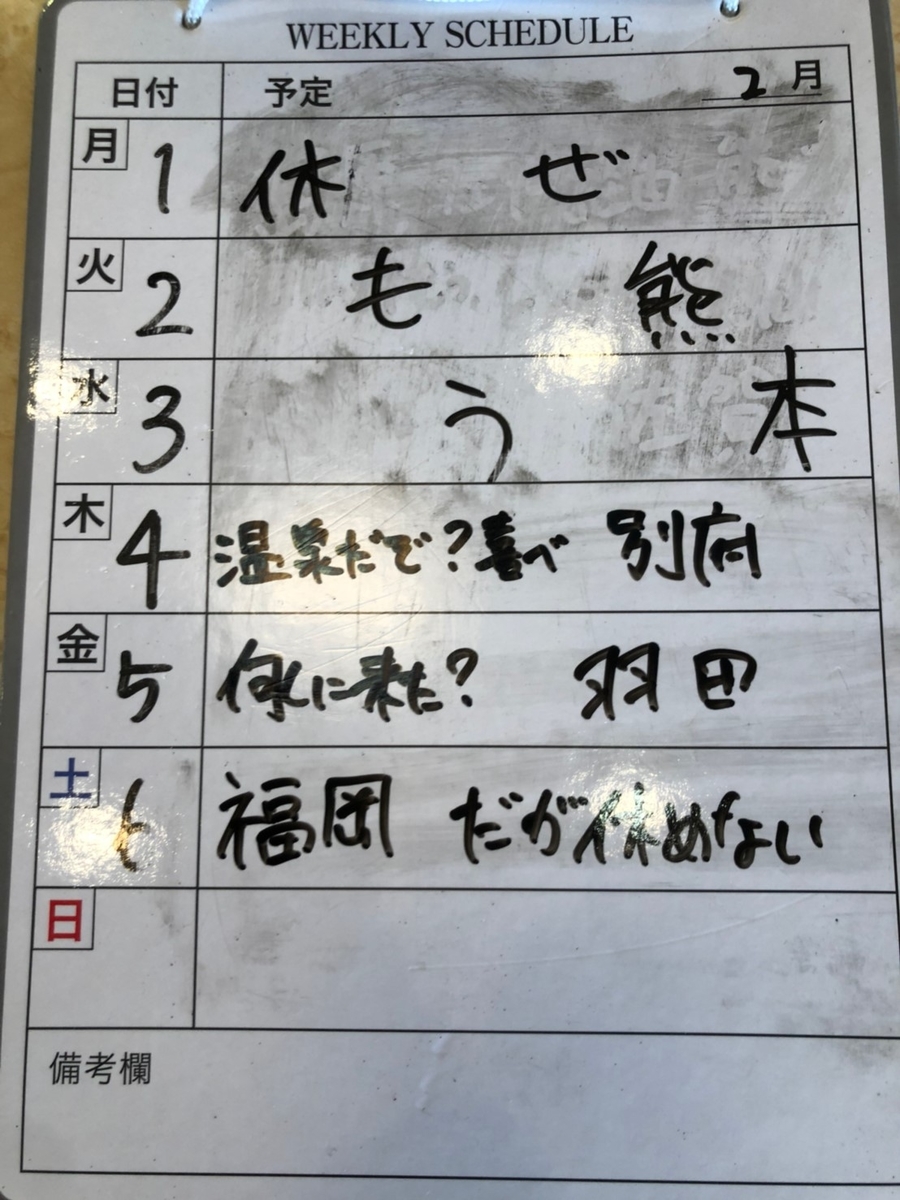 WEEKLY SCHEDULE
日付 予定 2月
月 1 休 ぜ
火 2 も 熊
水 3 う 本
木 4 温泉だで?喜べ 別府
金 5 何に来た? 羽田
土 6 福岡 だが休めない
日
備考欄